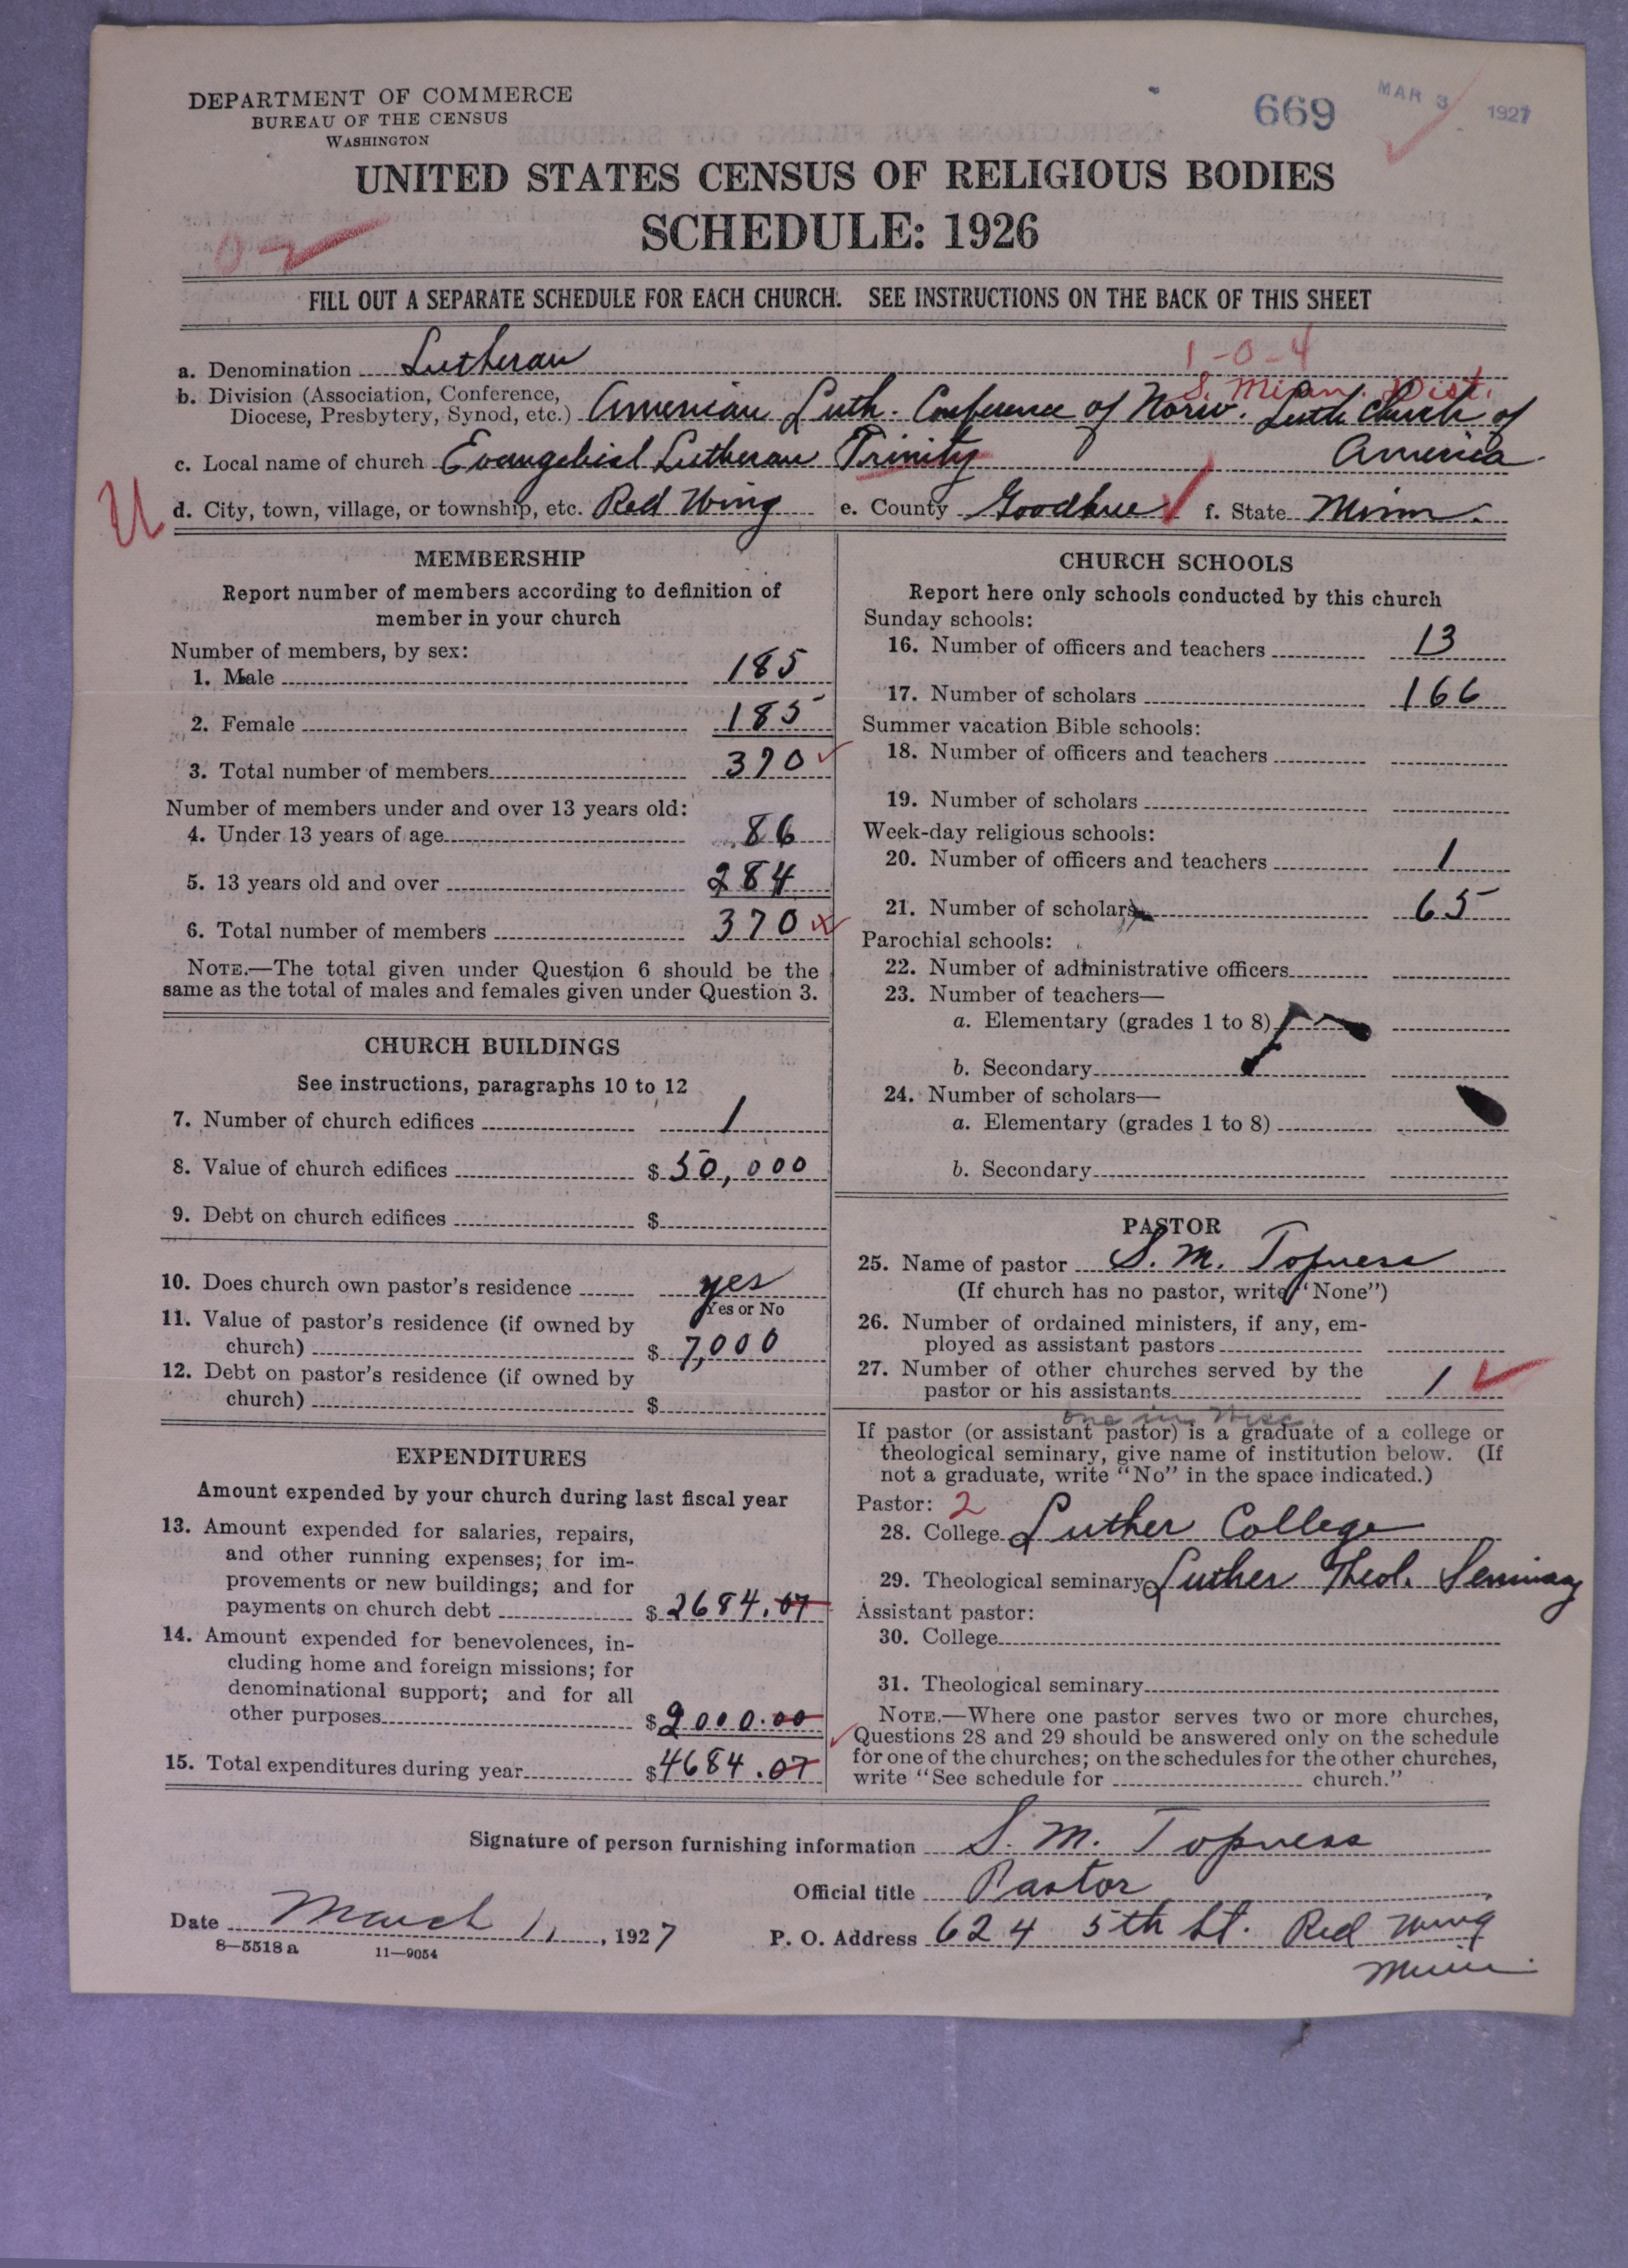 DEPARTMENT OF COMMERCE
BUREAU OF THE CENSUS
WASHINGTON
669
MAR 3 1927
UNITED STATES CENSUS OF RELIGIOUS BODIES
SCHEDULE: 1926
02
FILL OUT A SEPARATE SCHEDULE FOR EACH CHURCH. SEE INSTRUCTIONS ON THE BACK OF THIS SHEET
1-0-4
a. Denomination Lutheran
S. Minn. Dist.
b. Division (Association, Conference, Diocese, Presbytery, Synod, etc.) American Luth. Conference of Norw. Luth. Church of
America
c. Local name of church Evangelical Lutheran Trinity
U
d. City, town, village, or township, etc. Red Wing e. County Goodhue f. State Minn.
MEMBERSHIP
Report number of members according to definition of
member in your church
Number of members, by sex:
1. Male 185
2. Female 185
3. Total number of members 370
Number of members under and over 13 years old:
4. Under 13 years of age 86
5. 13 years old and over 284
6. Total number of members 370
NOTE.—The total given under Question 6 should be the
same as the total of males and females given under Question 3.
CHURCH BUILDINGS
See instructions, paragraphs 10 to 12
7. Number of church edifices 1
8. Value of church edifices $ 50,000
9. Debt on church edifices $
10. Does church own pastor's residence yes
Yes or No
11. Value of pastor's residence (if owned by
church) $ 7,000
12. Debt on pastor's residence (if owned by
church) $
EXPENDITURES
Amount expended by your church during last fiscal year
13. Amount expended for salaries, repairs,
and other running expenses; for im-
provements or new buildings; and for
payments on church debt $ 2684.07
14. Amount expended for benevolences, in-
cluding home and foreign missions; for
denominational support; and for all
other purposes $ 2000.00
15. Total expenditures during year $ 4684.07
CHURCH SCHOOLS
Report here only schools conducted by this church
Sunday schools:
16. Number of officers and teachers 13
17. Number of scholars 166
Summer vacation Bible schools:
18. Number of officers and teachers
19. Number of scholars
Week-day religious schools:
20. Number of officers and teachers 1
21. Number of scholars 65
Parochial schools:
22. Number of administrative officers
23. Number of teachers—
a. Elementary (grades 1 to 8)
b. Secondary
24. Number of scholars—
a. Elementary (grades 1 to 8)
b. Secondary
PASTOR
25. Name of pastor S. M. Topness
(If church has no pastor, write "None")
26. Number of ordained ministers, if any, em-
ployed as assistant pastors
27. Number of other churches served by the
pastor or his assistants 1
one in Wisc.
If pastor (or assistant pastor) is a graduate of a college or
theological seminary, give name of institution below. (If
not a graduate, write "No" in the space indicated.)
Pastor: 2
28. College Luther College
29. Theological seminary Luther Theol. Seminary
Assistant pastor:
30. College
31. Theological seminary
NOTE.—Where one pastor serves two or more churches,
Questions 28 and 29 should be answered only on the schedule
for one of the churches; on the schedules for the other churches,
write "See schedule for church."
Signature of person furnishing information S. M. Topness
Official title Pastor
Date March 1, 1927
P. O. Address 624 5th St. Red Wing
Minn.
8—5518 a 11—9054